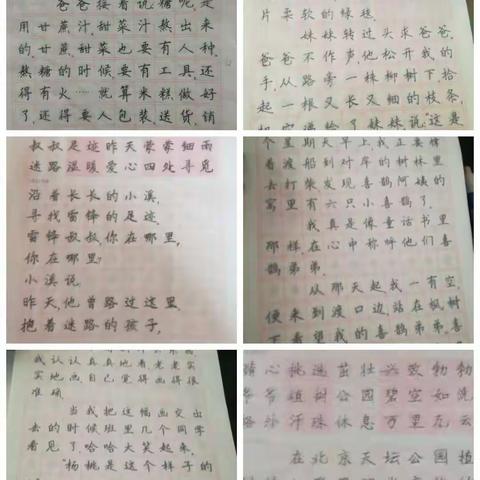 爸爸接着说糖呢,是
用甘蔗汁甜菜汁熬出来
的,甘蔗,甜菜也要有人种,
熬糖的时候要有工具,还
得有火……就算米糕做好
了,还得要人包装,送货,销
片柔软的绿毯。
妹妹转过头求爸爸,
爸爸不作声,他松开我的
手,从路旁一株柳树下拾
起一根又长又细的枝条,
妹妹,说:"这是
叔叔足迹昨天蒙蒙细雨
迷路温暖爱心四处寻觅
沿着长长的小溪,
寻找雷锋的足迹,
雷锋叔叔你在哪里,
你在哪里?
小溪说,
昨天,他曾路过这里,
抱着迷路的孩子,
个星期天早上,我正要撑
着渡船到对岸的树林里
去打柴发现喜鹊阿姨的
窝里有六只小喜鹊了,
我真是像童话书里
那样,在心中称呼他们喜
鹊弟弟。
从那天起我一有空,
便来到渡口边,站在枫树
下看望我的喜鹊弟弟,喜
我认认真真地看,老老实
实地画,自己觉得画得很
准确。
当我把这幅画交出
去的时候班里几个同学
看见了,哈哈大笑起来,
"杨桃是这个样子的
精心挑选茁壮兴致勃勃
爷爷植树公园碧空如洗
汗珠休息万里无云
在北京天坛公园植